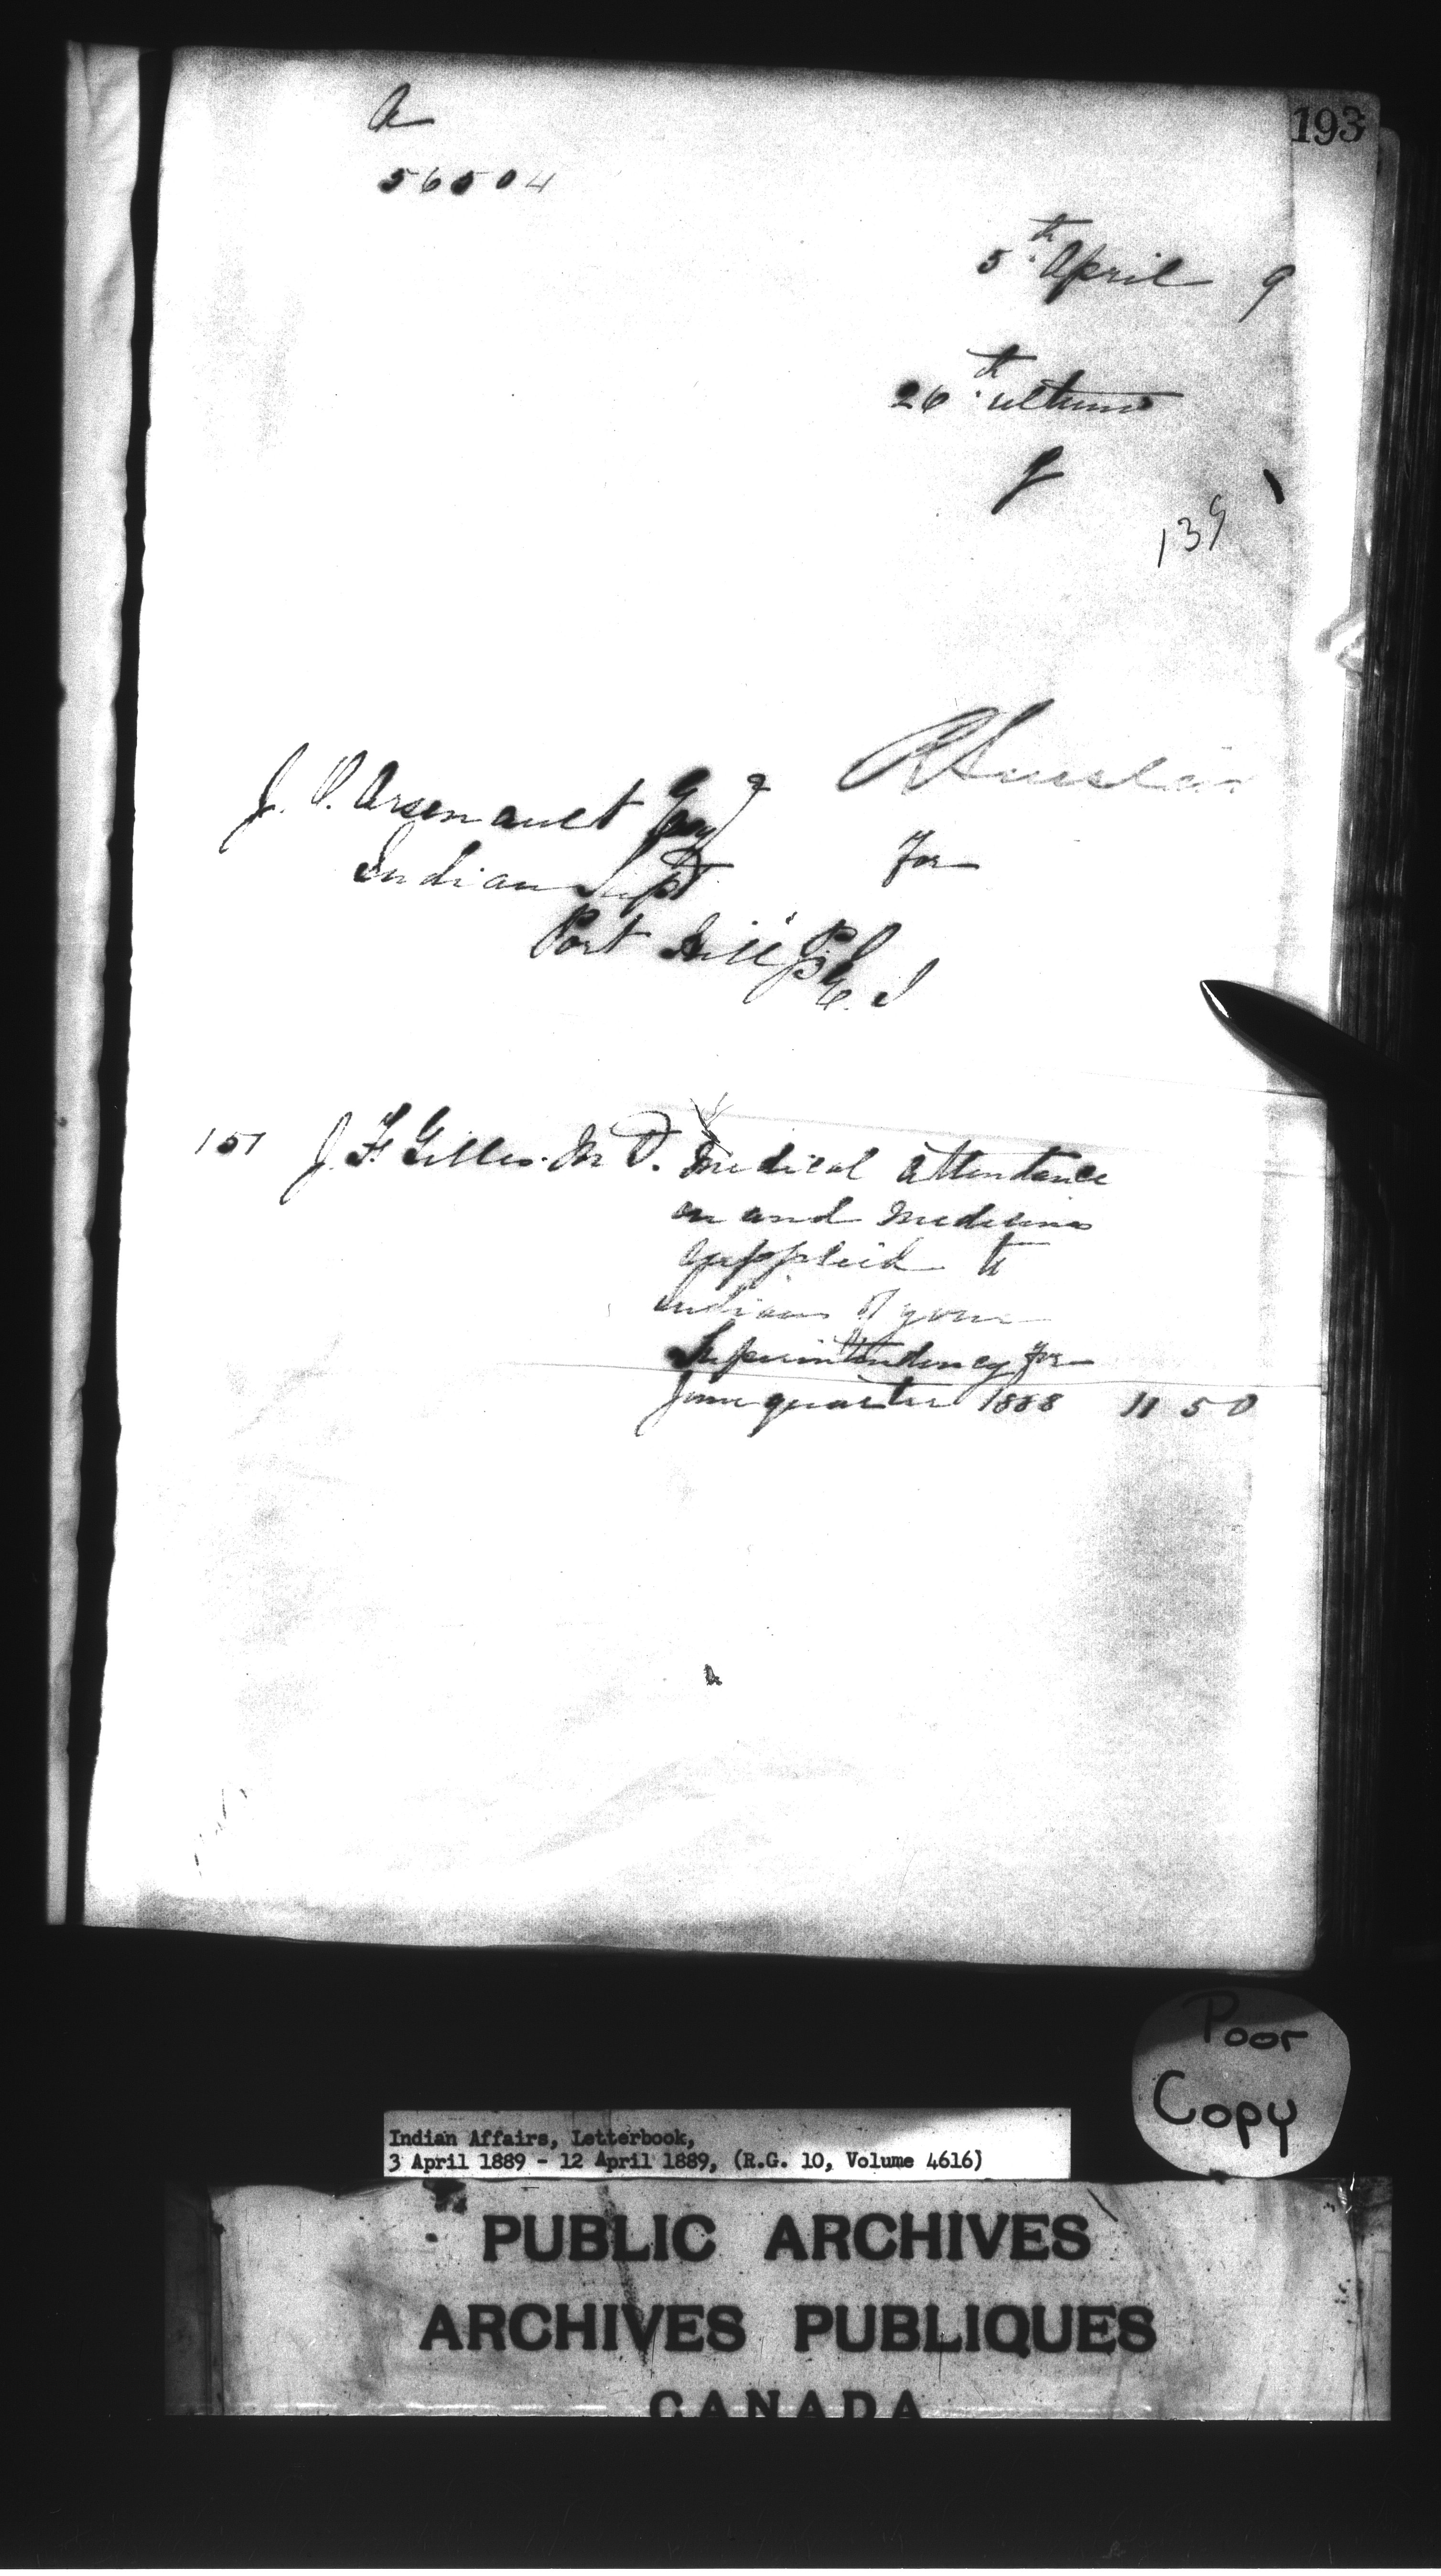 193
A
56504
5th April 9
26th ultimo
139
R Sinclair
J. O. Arsenault Esq
for
Indian Supt
Port Hill P. E. I
151 J. F. Gilles. M D. Medical attendance
on and medicines
supplied to
Indians of your
Superintendency for
June quarter 1888 11 50
Poor
Copy
Indian Affairs, Letterbook,
3 April 1889 - 12 April 1889, (R.G. 10, Volume 4616)
PUBLIC ARCHIVES
ARCHIVES PUBLIQUES
CANADA